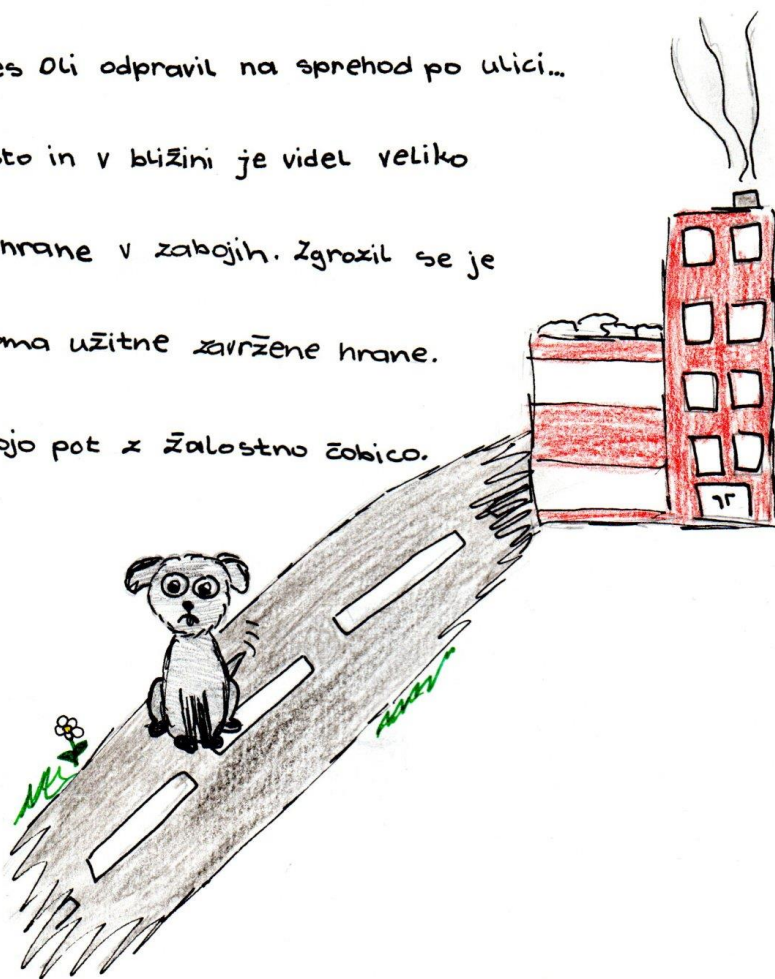 es Oli odpravil na sprehod po ulici...
sto in v bližini je videl veliko
hrane v zabojih. Zgrozil se je
oma užitne zavržene hrane.
ojo pot z žalostno čobico.